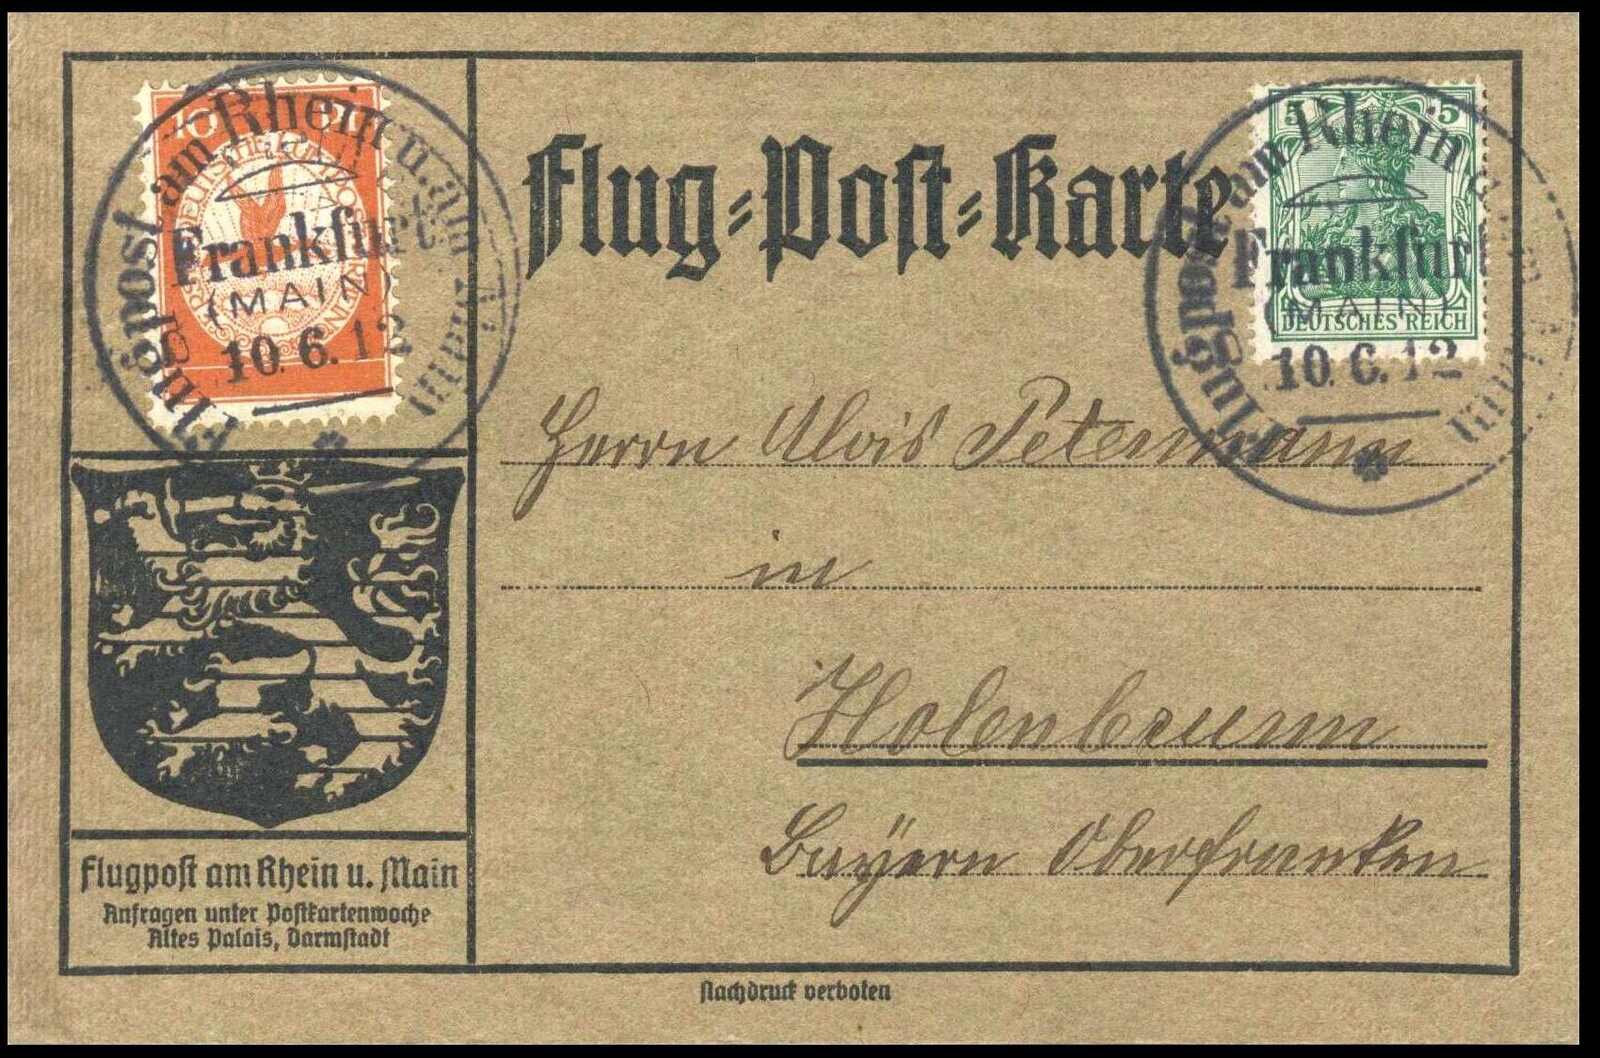 10 Pf
Flugpost am Rhein u. am Main
Frankfurt
(MAIN)
10.6.12
Flug-Post-Karte
5 5
DEUTSCHES REICH
Flugpost am Rhein u. am Main
Frankfurt
(MAIN)
10.6.12
Herrn Alois Petermann
in
Holenbrunn
Bayern Oberfranken
Flugpost am Rhein u. Main
Anfragen unter Postkartenwoche
Altes Palais, Darmstadt
Nachdruck verboten